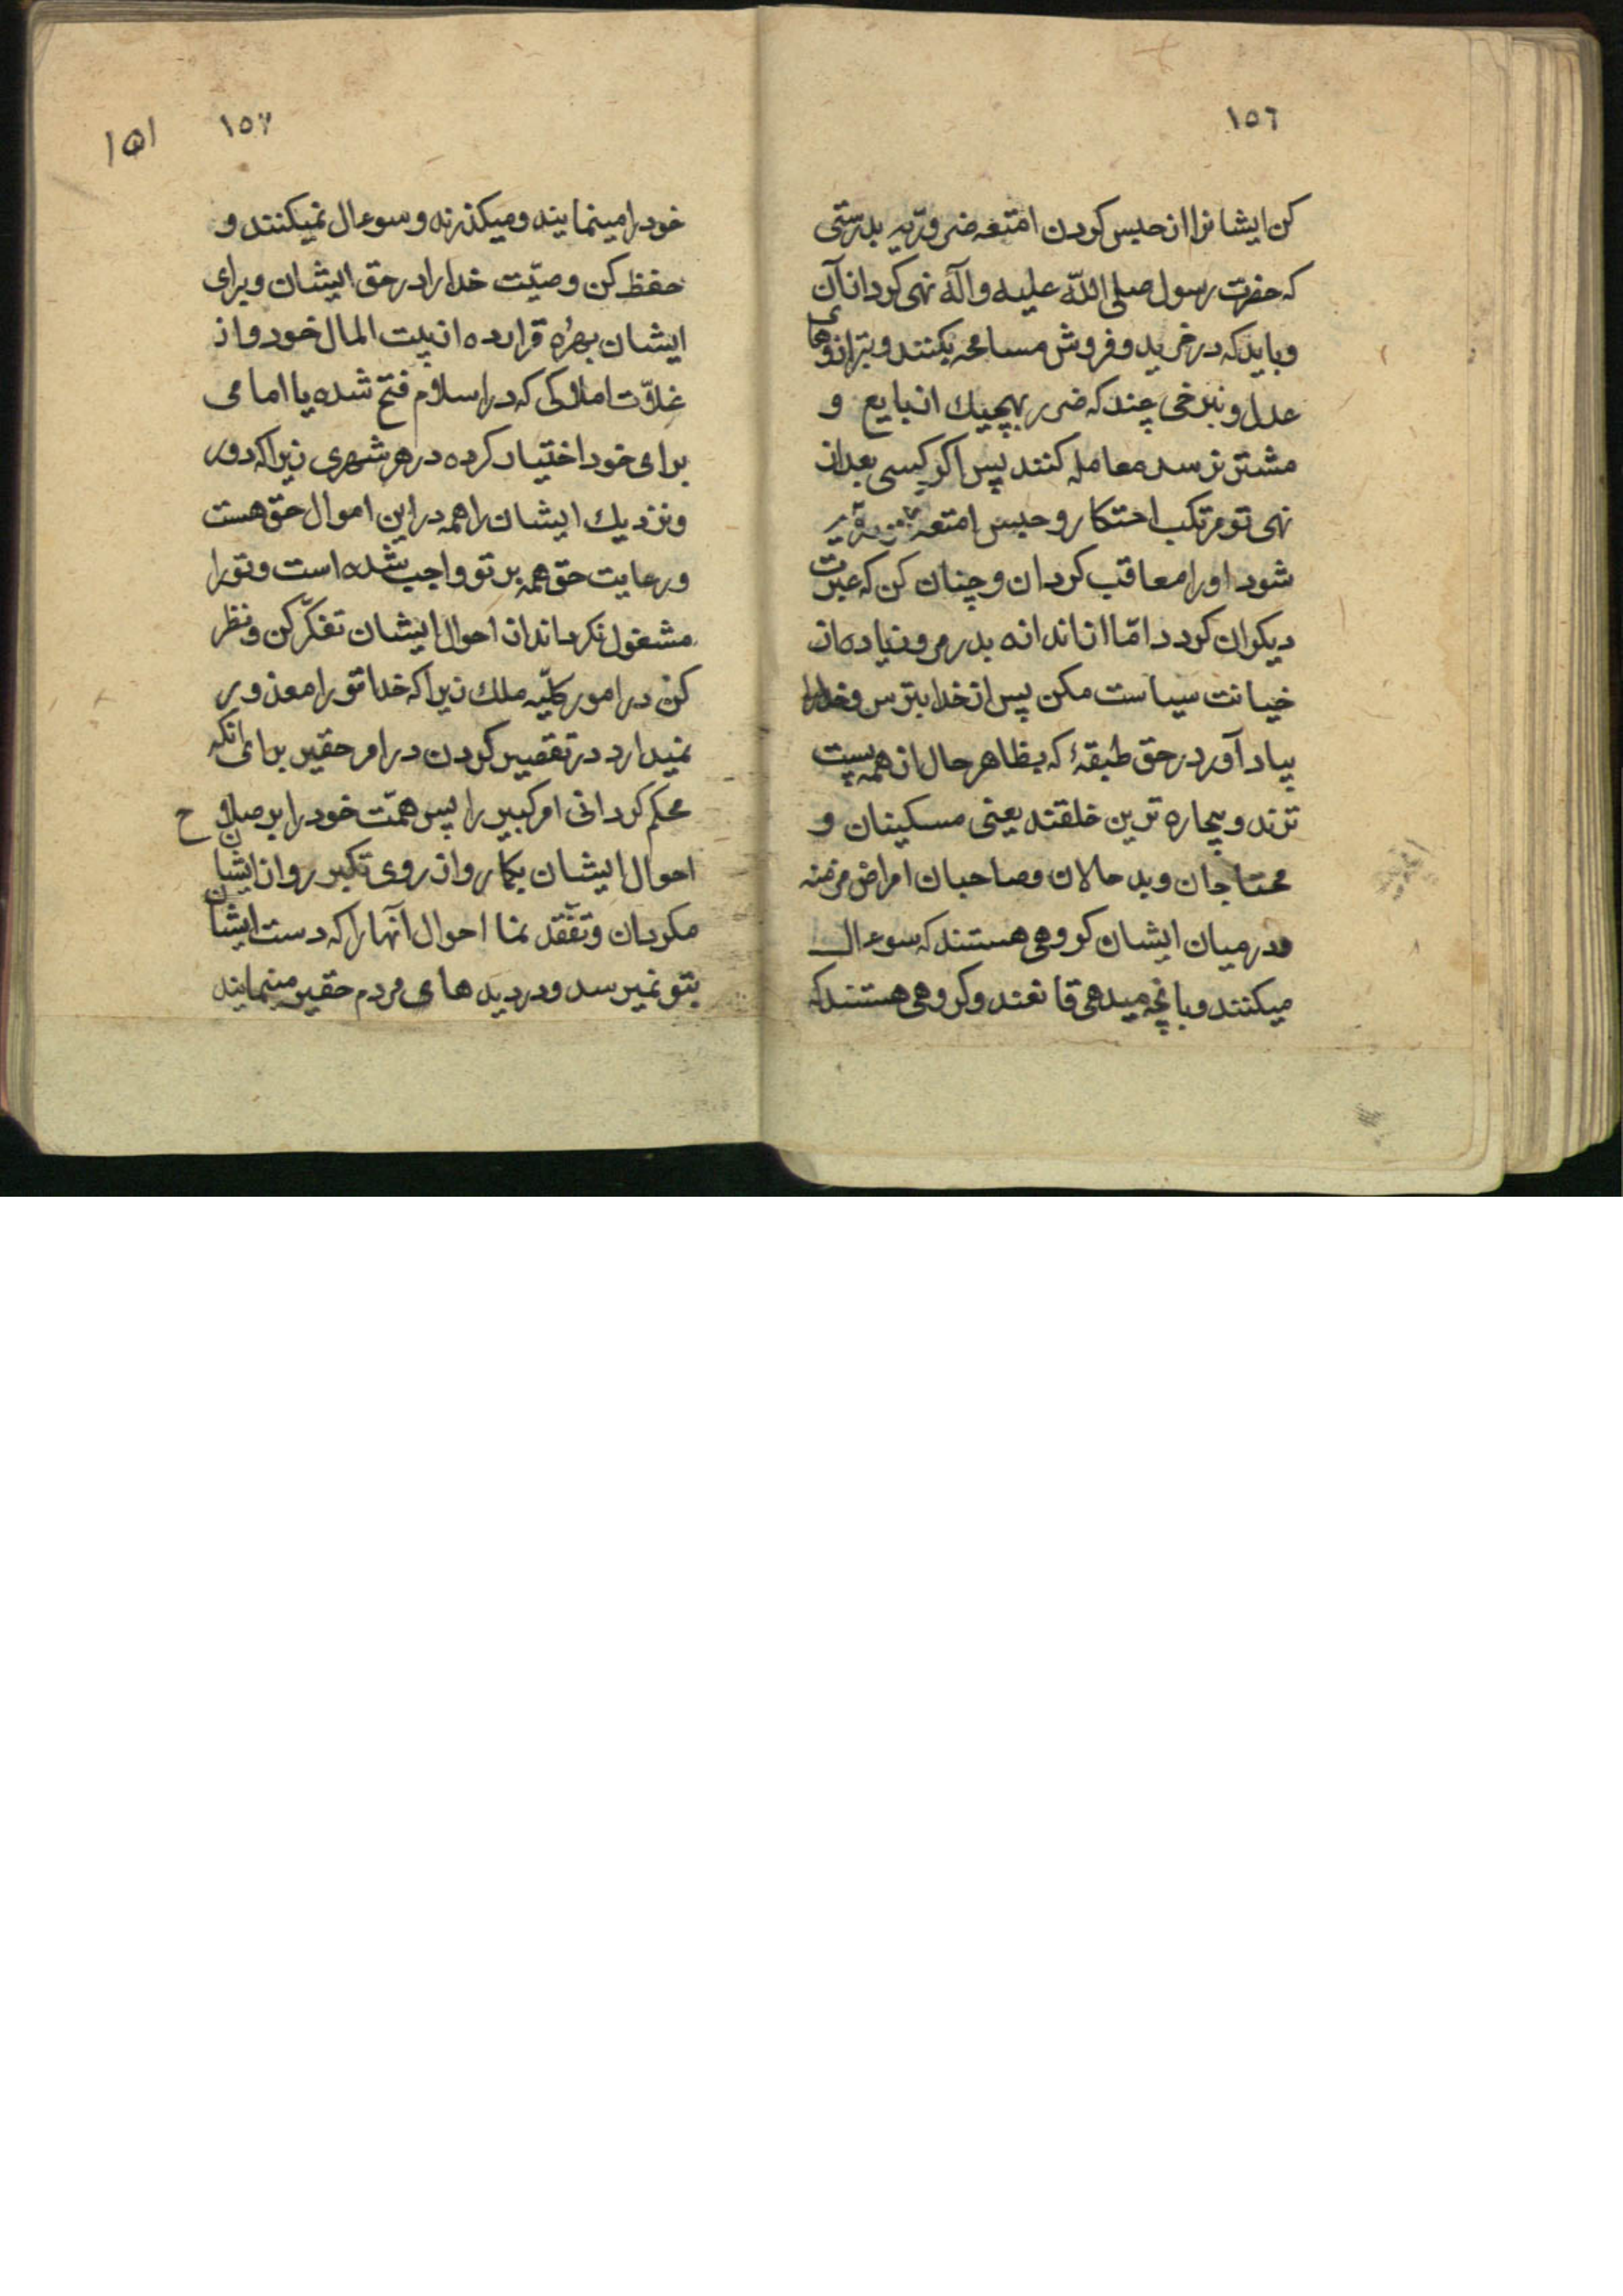 ١٥٦
کن ایشانرا از حبس کردن امتعه ضروریّه بدرستی
که حضرت رسول صلی اللّه علیه وآله نهی کرد از آن
و باید که در خرید و فروش مسامحه بکنند و بترازوهای
عدل و نبرخی چند که ضرر بهیچیك از بایع و
مشتر نرسد معامله کنند پس اکر کسی بعد از
نهی تو مرتکب احتکار و حبس امتعه
شود او را معاقب کردان و چنان کن که عبرت
دیکران کردد امّا از اندازه بدر مرو و زیاده از
خیانت سیاست مکن پس از خدا بترس و خدا را
بیاد آور در حق طبقهٔ که بظاهر حال از همه پست
ترند و بیچاره ترین خلقند یعنی مسکینان و
محتاجان و بد حالان و صاحبان امراض مزمنه
و در میان ایشان کروهی هستند که سوءال
میکنند و بانچه میدهی قانعند و کروهی هستند که
١٥٧
١۵١
خود را مینمایند و میکذرند و سوءال نمیکنند و
حفظ کن وصیّت خدا را در حق ایشان و برای
ایشان بهرهٔ قرار ده از بیت المال خود و از
غلّات املاکی که در اسلام فتح شده یا امامی
برای خود اختیار کرده در هر شهری زیرا که دور
و نزدیك ایشان را همه در این اموال حق هست
و رعایت حق همه بر تو واجب شده است و تو را
مشغول نکرداند از احوال ایشان تفکّر کن و نظر
کن در امور کلیّه ملك زیرا که خدا تو را معذور
نمیدارد در تقصیر کردن در امر حقیر برای انکه
محکم کردانی امر کبیر را پس همّت خود را بر صلاح
احوال ایشان بکار و از روی تکبر رو از ایشان
مکردان و تفقّد نما احوال آنها را که دست ایشان
بتو نمیرسد و در دیدهای مردم حقیر مینمایند